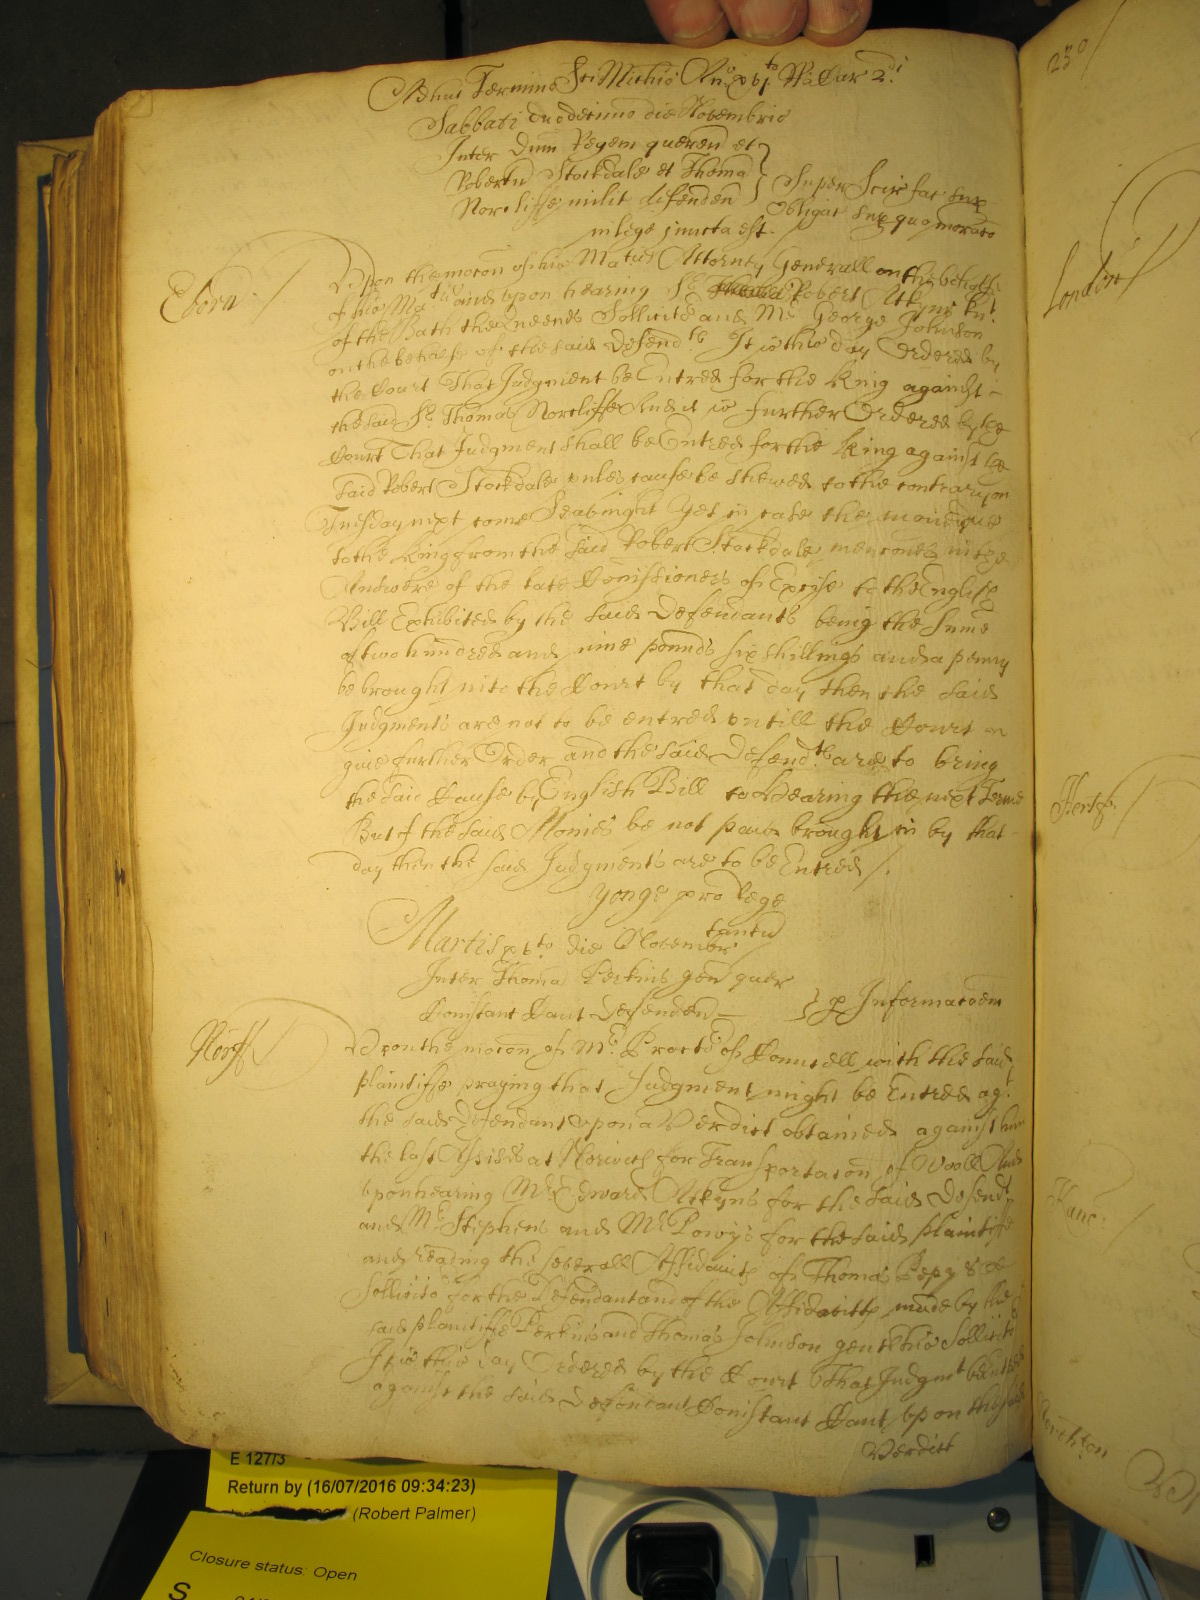 Adhuc Termino Sci Michis Ano xvjto Rs Car 2di
Sabbati duodecimo die Novembris
Inter Dnm Regem queren et
Robertu Stockdale et Thoma
Norcliffe milit defenden
Super Scir fac sup
obligat sup quo morato
in lege juncta est.
Eborn
Upon the mocon of his Maties Attorney Generall on the behalfe
of his Matie and upon hearing Sr Robert Atkyns Knt
of the Bath the Queenes Sollicitor and Mr George Johnson
on the behalfe of the said Defendts It is this day Ordered by
the Court That Judgment be Entred for the King against
the said Sr Thomas Norcliffe And it is further Ordered by the
Court That Judgment shall be Entred for the King against the
said Robert Stockdale unles cause be shewed to the contrary on
Tuesday next come Seavnight Yet in case the moneys due
to the King from the said Robert Stockdale mencioned in the
Answere of the late Comissioners of Excise to the English
Bill Exhibited by the said Defendants being the sume
of two hundred and nine pounds six shillings and a penny
be brought into the Court by that day then the said
Judgments are not to be entred untill the Court
give further Order and the said Defendts are to bring
the said Cause by English Bill to Hearing the next Terme
But if the said Monies be not paid brought in by that
day then the said Judgments are to be Entred
Yonge pro Rege
tantu
Martis xvto die Novembr
Inter Thoma Perkins gen quer
Constant Caut Defenden
p Informacoem
Norff
Upon the mocon of Mr Proctor of Councell with the said
plaintiffe praying that Judgment might be Entred agt
the said Defendant upon a Verdict obtained against him
the last Assises at Norwich for Transportacon of Wooll And
upon hearing Mr Edward Atkyns for the said Defendt
and Mr Stephens and Mr Powys for the said plaintiffe
and reading the severall Affidavits of Thomas Pepys
Sollicitor for the Defendant and of the Affidavitts made by the
said plaintiffe Perkins and Thomas Johnson gent his Sollicitor
It is this day Ordered by the Court That Judgmt be entred
against the said Defendant Constant Caut upon the said
Verdict
230
London
Hertf.
Kanc:
E 127/3
Return by (16/07/2016 09:34:23)
(Robert Palmer)
Closure status: Open
S